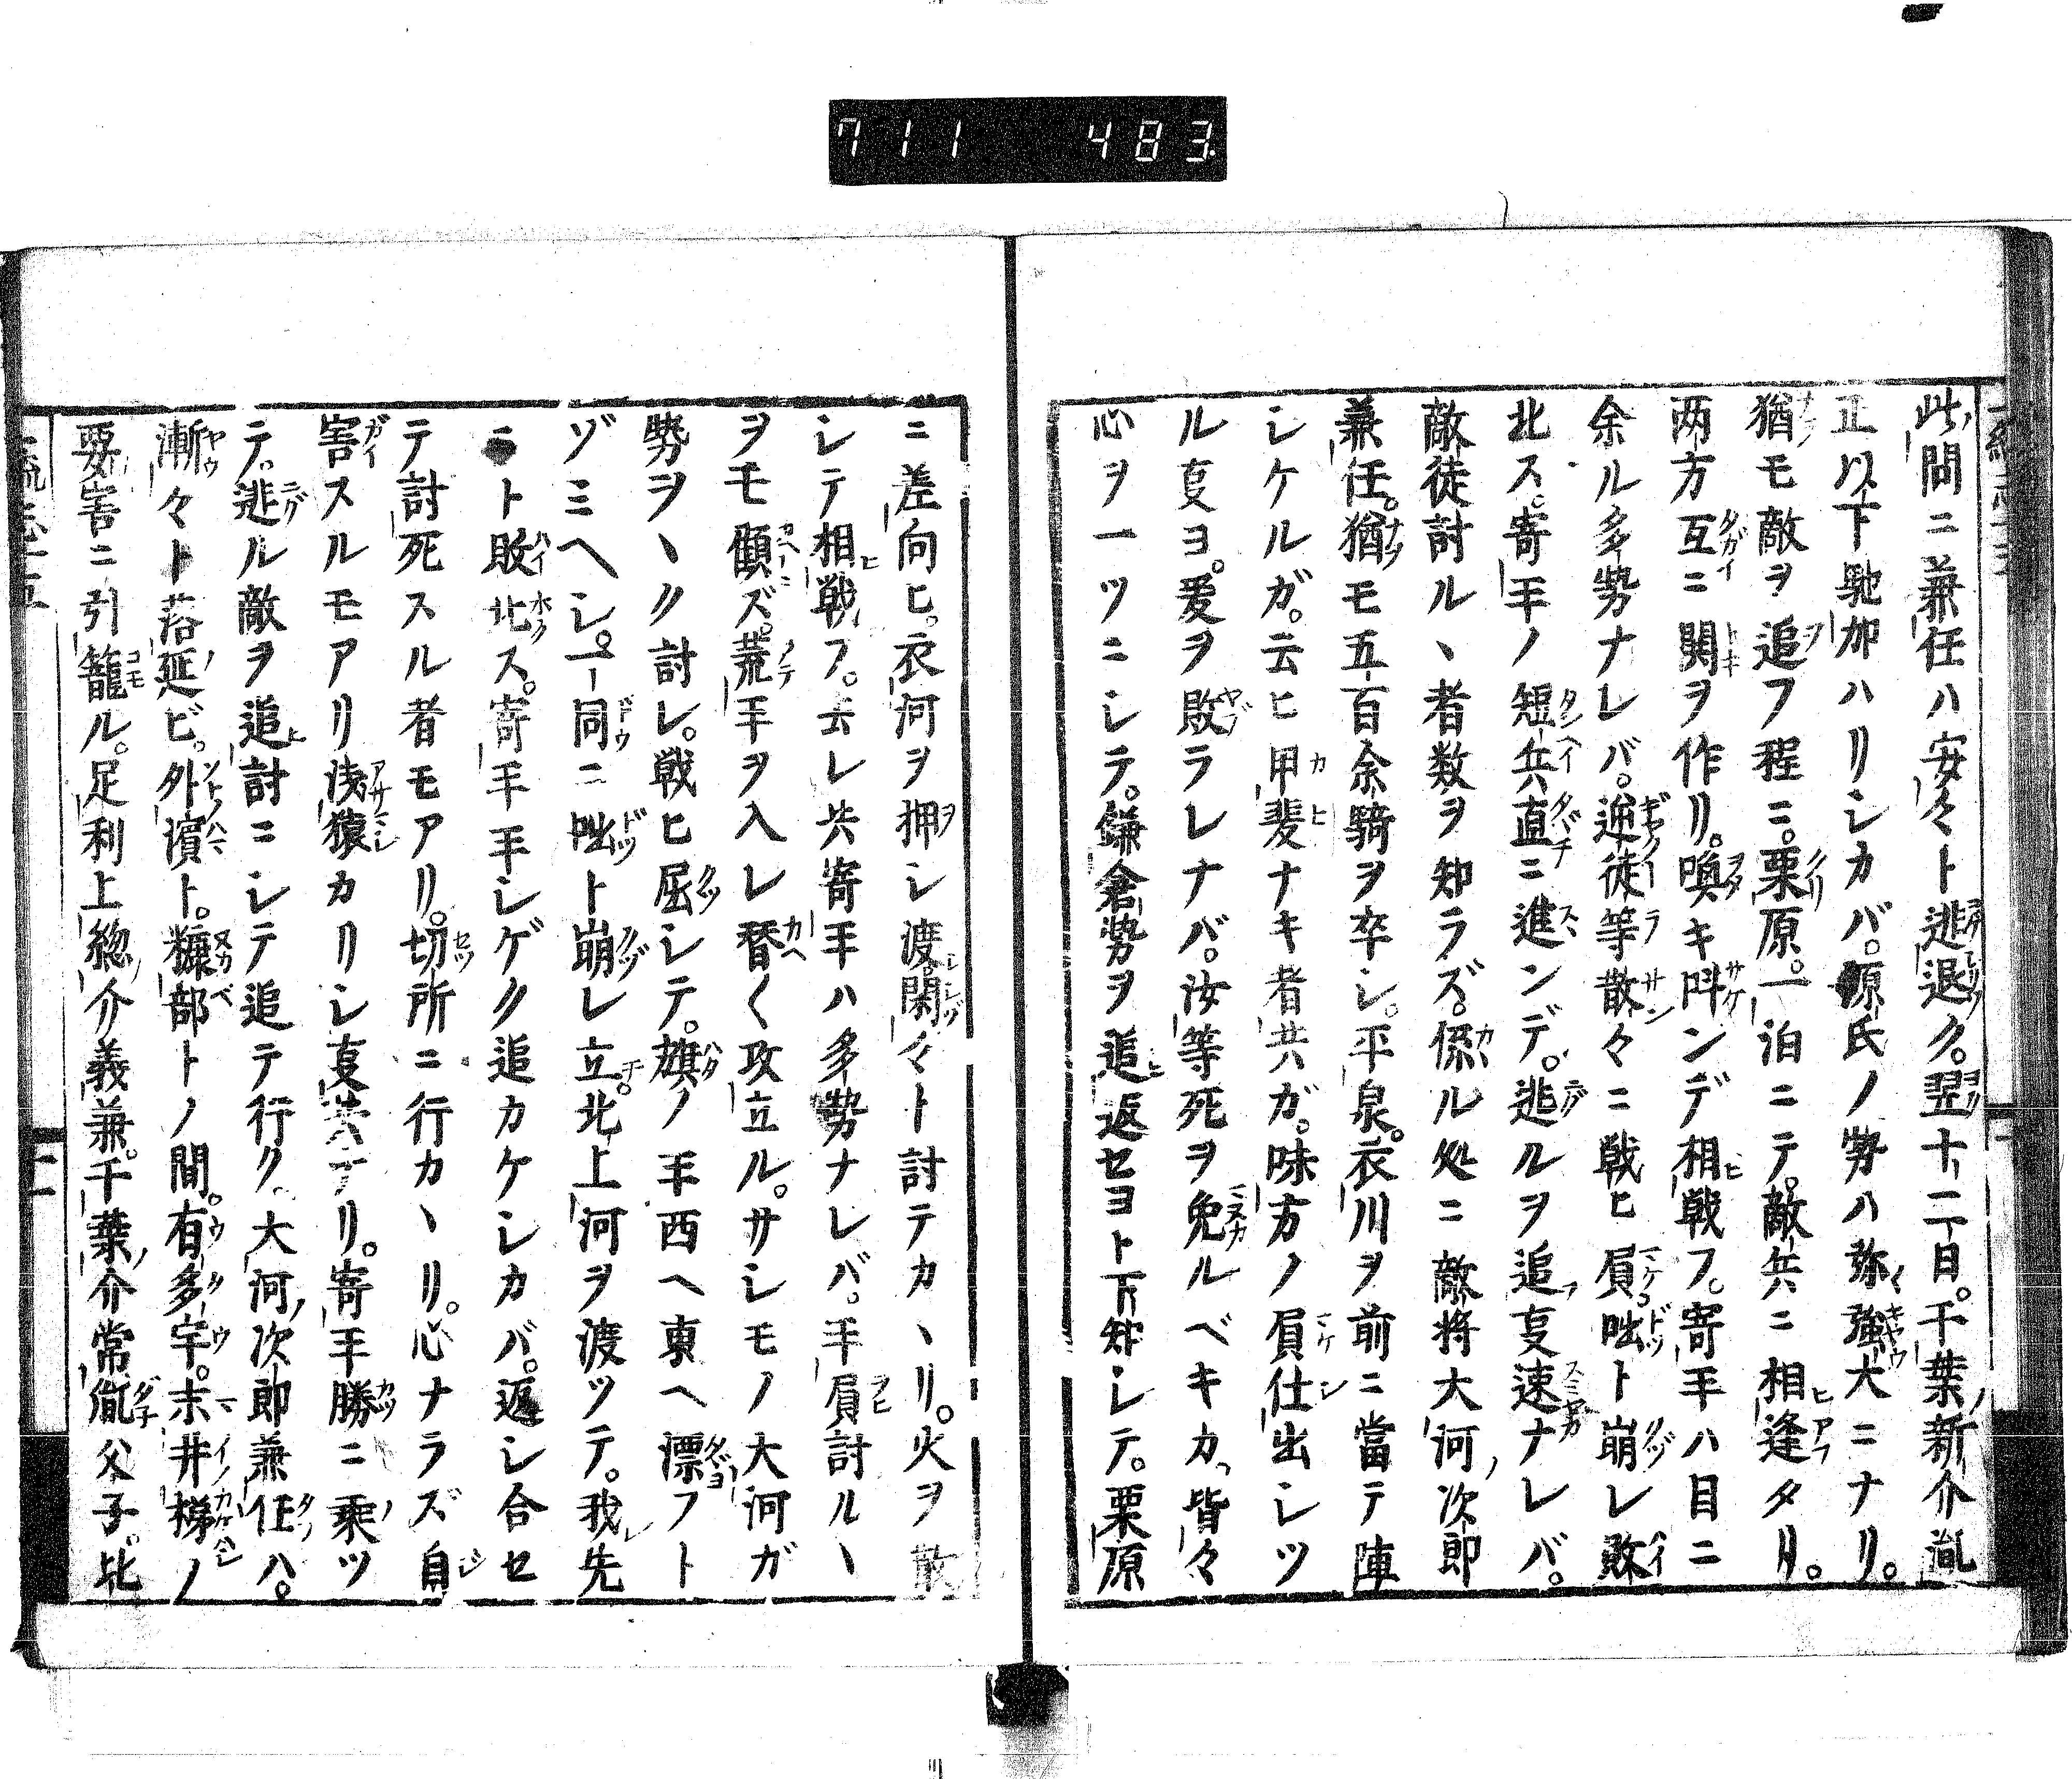 711 483
此間ニ兼任ハ安々ト逃退ク。翌十二日。千葉新介胤
正以下馳加ハリシカバ。源氏ノ勢ハ弥強大ニナリ。
猶モ敵ヲ追フ程ニ。栗原。一泊ニテ。敵兵ニ相逢タリ。
两方互ニ閧ヲ作リ。喚キ呌ンデ相戦フ。寄手ハ目ニ
余ル多勢ナレバ。逆徒等散々ニ戦ヒ屓咄ト崩レ敗
北ス。寄手ノ短兵直ニ進ンデ。逃ルヲ追㕝速ナレバ。
敵徒討ルヽ者数ヲ知ラズ。係ル処ニ敵将大河次郎
兼任。猶モ五百余騎ヲ卒シ。平泉。衣川ヲ前ニ當テ陣
シケルガ。云ヒ甲斐ナキ者共ガ。味方ノ屓仕出シツ
ル㕝ヨ。爰ヲ敗ラレナバ。汝等死ヲ免ルベキカ。皆々
心ヲ一ツニシテ。鎌倉勢ヲ追返セヨト下知シテ。栗原
ニ差向ヒ。衣河ヲ押シ渡。閑々ト討テカヽリ。火ヲ散
シテ相戦フ。去レ共寄手ハ多勢ナレバ。手屓討ルヽ
ヲモ顧ズ。荒手ヲ入レ替く攻立ル。サシモノ大河ガ
勢ヲヽク討レ。戦ヒ屈シテ。旗ノ手西ヘ東ヘ漂フト
ゾミヘシ。一同ニ咄ト崩レ立。北上河ヲ渡ツテ。我先
ニト敗北ス。寄手手シゲク追カケシカバ。返シ合セ
テ討死スル者モアリ。切所ニ行カヽリ。心ナラズ自
害スルモアリ浅猿カリシ㕝共ナリ。寄手勝ニ乗ツ
テ。逃ル敵ヲ追討ニシテ追テ行ク。大河次郎兼任ハ。
漸々ト落延ビ。外濱ト。糠部トノ間。有多宇。末井梯ノ
要害ニ引籠ル。足利上総介義兼。千葉介常胤父子。比